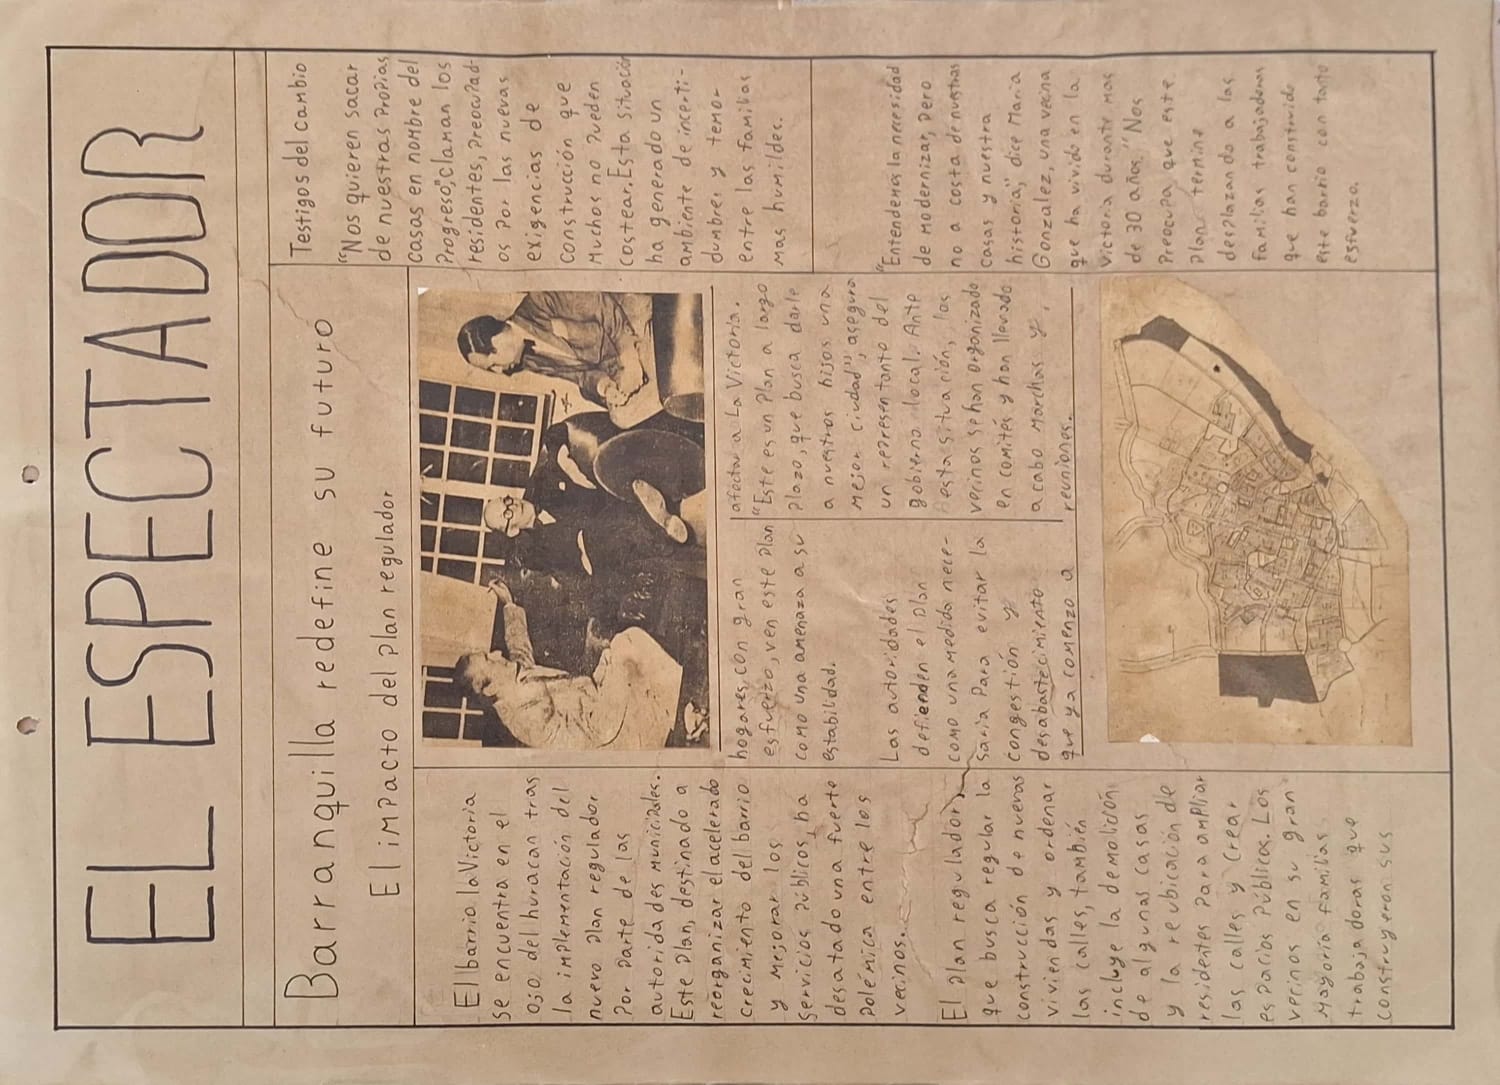 EL ESPECTADOR
Barranquilla redefine su futuro
El impacto del plan regulador
El barrio la Victoria
se encuentra en el
ojo del huracan tras
la implementación del
nuevo plan regulador
por parte de las
autoridades municipales.
Este plan, destinado a
reorganizar el acelerado
crecimiento del barrio
y mejorar los
servicios públicos, ha
desatado una fuerte
polémica entre los
vecinos.
El plan regulador,
que busca regular la
construcción de nuevas
viviendas y ordenar
las calles, también
incluye la demolición
de algunas casas
y la reubicación de
residentes para ampliar
las calles y crear
espacios públicos. Los
vecinos en su gran
mayoría familias
trabajadoras que
construyeron sus
hogares, con gran
esfuerzo, ven este plan
como una amenaza a su
estabilidad.
Las autoridades
defienden el plan
como una medida nece-
saria para evitar la
congestión y
desabastecimiento
que ya comenzo a
afectar a La Victoria.
"Este es un plan a largo
plazo, que busca darle
a nuestros hijos una
mejor ciudad", asegura
un representante del
gobierno local. Ante
esta situación, los
vecinos se han organizado
en comités y han llevado
a cabo marchas y
reuniones.
Testigos del cambio
"Nos quieren sacar
de nuestras propias
casas en nombre del
progreso", claman los
residentes, preocupad-
os por las nuevas
exigencias de
construcción que
muchos no pueden
costear. Esta situación
ha generado un
ambiente de incerti-
dumbres y temor
entre las familias
mas humildes.
"Entendemos la necesidad
de modernizar, pero
no a costa de nuestras
casas y nuestra
historia," dice Maria
Gonzalez, una vecina
que ha vivido en la
victoria durante mas
de 30 años. "Nos
preocupa que este
plan termine
desplazando a las
familias trabajadoras
que han construido
este barrio con tanto
esfuerzo.